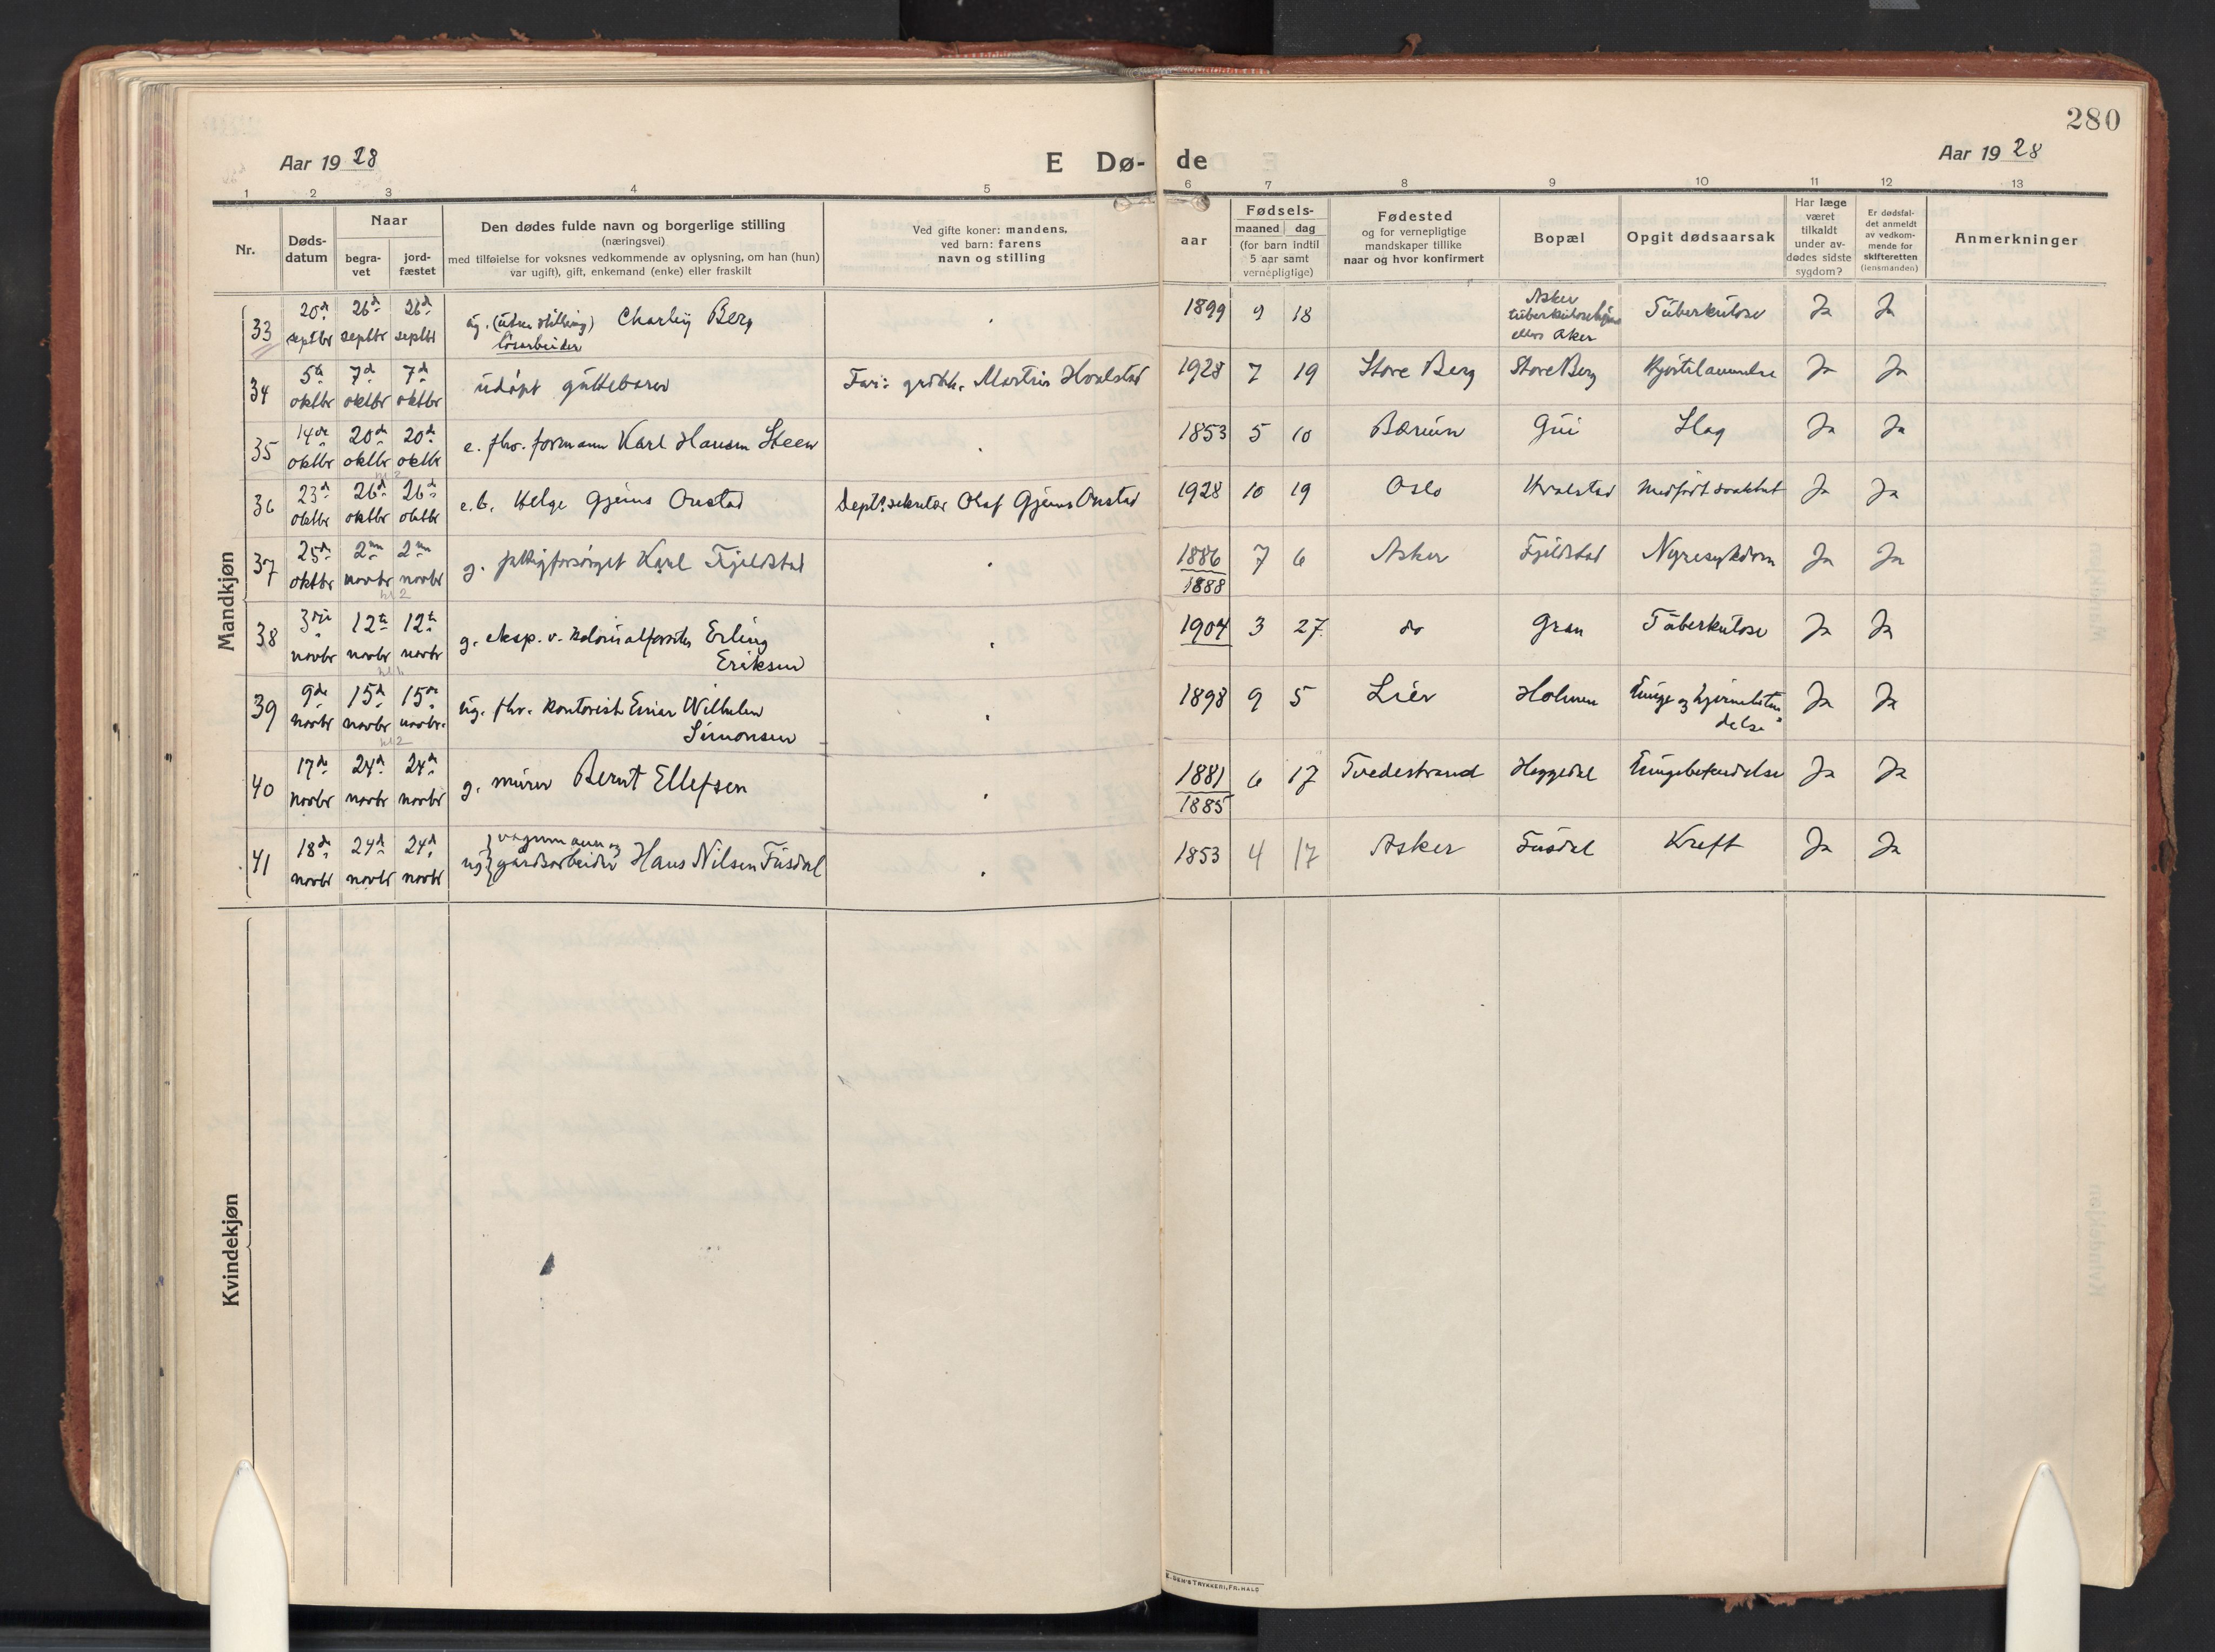 280
Aar 1928
E Dø-
de
Aar 1928
1 2 3 4 5 6 7 8 9 10 11 12 13
Nr.
Døds-
datum
Naar
begra-
vet
jord-
fæstet
Den dødes fulde navn og borgerlige stilling
(næringsvei)
med tilføielse for voksnes vedkommende av oplysning, om han (hun)
var ugift), gift, enkemand (enke) eller fraskilt
Ved gifte koner: mandens,
ved barn: farens
navn og stilling
aar
Fødsels-
maaned dag
(for barn indtil
5 aar samt
vernepligtige)
Fødested
og for vernepligtige
mandskaper tillike
naar og hvor konfirmert
Bopæl
Opgit dødsaarsak
Har læge
været
tilkaldt
under av-
dødes sidste
sygdom?
Er dødsfal-
det anmeldt
av vedkom-
mende for
skifteretten
(lensmanden)
Anmerkninger
Mandkjøn
33 20d septbr 26d septbr 26d septbr ug. (uten stilling) Charley Berg
løsarbeider
1899 9 18 Asker
tuberkulosehjem
ellers Aker
Tuberkulose Ja Ja
34 5te oktbr 7d oktbr 7d oktbr udøpt guttebarn Far: grdbr. Martin Hvalstad 1928 7 19 Store Berg Store Berg Hjertelammelse Ja Ja
35 14de oktbr 20d oktbr 20d oktbr e. fhv. formann Karl Hansen Steen 1853 5 10 Bærum Gui Slag Ja Ja
36 23d oktbr 26d oktbr 26d oktbr e.b. Helge Gjems Onstad Dept. sekretær Olaf Gjems Onstad 1928 10 19 Oslo Hvalstad Medfødt svakhet Ja Ja
37 25de oktbr 2nn novbr 2nn novbr g. fattigforsørget Karl Fjeldstad 1886
1888
7 6 Asker Fjeldstad Nyresykdom Ja Ja
38 3die novbr 12te novbr 12te novbr g. eksp. v. kolonialforretn. Erling
Eriksen
1904 3 27. do Gran Tuberkulose Ja Ja
39 9de novbr 15d novbr 15de novbr. ug. fhv. kontorist Einar Wilhelm
Simonsen
1898 9 5 Lier Holmen Lunge og hjernebeten
delse
Ja Ja
40 17de novbr 24d novbr 24d novbr g. murer Bernt Ellefsen 1881
1885
6 17 Tvedestrand Heggedal Lungebetendelse Ja Ja
41 18de novbr 24d novbr 24d novbr ug. vognmann og
gårdsarbeider Hans Nilsen Fusdal
1853 4 17 Asker Fusdal Kreft Ja Ja
Kvindekjøn